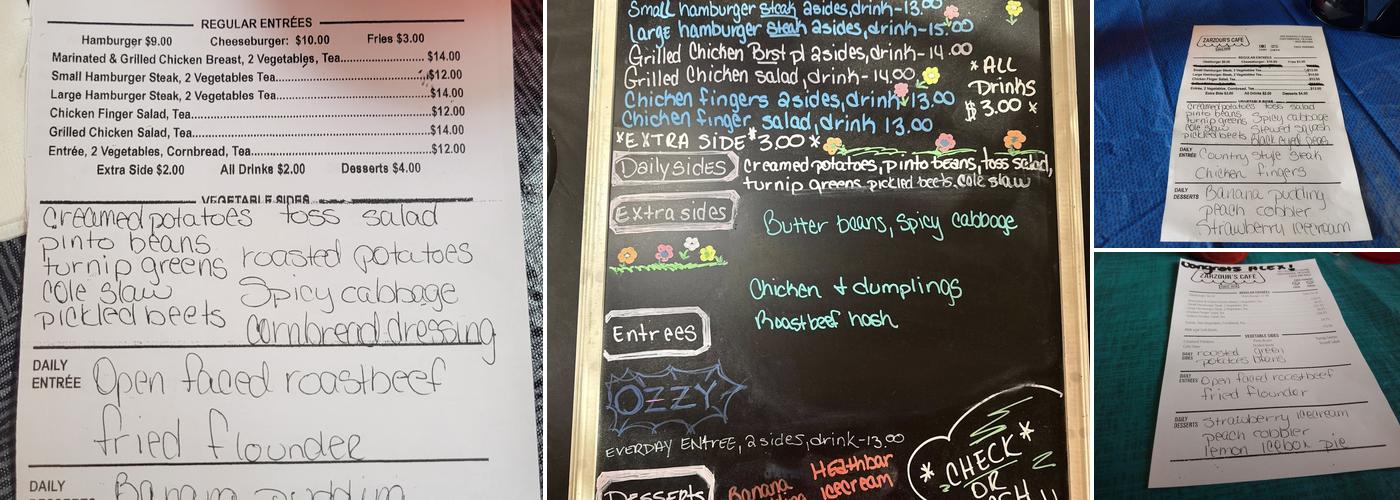 REGULAR ENTRÉES
Hamburger $9.00 Cheeseburger: $10.00 Fries $3.00
Marinated & Grilled Chicken Breast, 2 Vegetables, Tea....$14.00
Small Hamburger Steak, 2 Vegetables Tea....$12.00
Large Hamburger Steak, 2 Vegetables Tea....$14.00
Chicken Finger Salad, Tea....$12.00
Grilled Chicken Salad, Tea....$14.00
Entrée, 2 Vegetables, Cornbread, Tea....$12.00
Extra Side $2.00 All Drinks $2.00 Desserts $4.00
VEGETABLE SIDES
creamed potatoes toss salad
pinto beans
turnip greens roasted potatoes
cole slaw Spicy cabbage
pickled beets cornbread dressing
DAILY ENTRÉE Open faced roastbeef
fried flounder
DAILY Banana pudding
Small hamburger steak 2 sides, drink-13.00
large hamburger steak 2 sides, drink-15.00
Grilled Chicken Brst pl 2 sides, drink-14.00
Grilled Chicken salad, drink-14.00
Chicken fingers 2 sides, drink 13.00
Chicken finger salad, drink 13.00
*ALL Drinks $3.00*
*EXTRA SIDE $3.00*
Daily sides creamed potatoes, pinto beans, toss salad,
turnip greens pickled beets, cole slaw
Extra sides Butter beans, Spicy cabbage
Chicken & dumplings
Roastbeef hash
Entrees
OZZY
EVERDAY ENTREE, 2 sides, drink-13.00
DESSERTS Banana Heathbar icecream
*CHECK*
OR
ZARZOUR'S CAFÉ
REGULAR ENTRÉES
Small Hamburger Steak, 2 Vegetables Tea
Large Hamburger Steak, 2 Vegetables Tea
Chicken Finger Salad, Tea
Entrée, 2 Vegetables, Cornbread, Tea
Extra Side $2.00 All Drinks $2.00 Desserts $4.00
creamed potatoes toss salad
pinto beans Spicy cabbage
turnip greens stewed squash
cole slaw black eyed peas
pickled beets
DAILY ENTRÉE Country style steak
Chicken fingers
DAILY DESSERTS Banana pudding
peach cobbler
Strawberry icecream
Congrats ALEX!
ZARZOUR'S CAFÉ
REGULAR ENTRÉES
VEGETABLE SIDES
DAILY SIDES roasted potatoes green beans
DAILY ENTRÉES Open faced roastbeef
fried flounder
DAILY DESSERTS Strawberry icecream
peach cobbler
lemon icebox pie